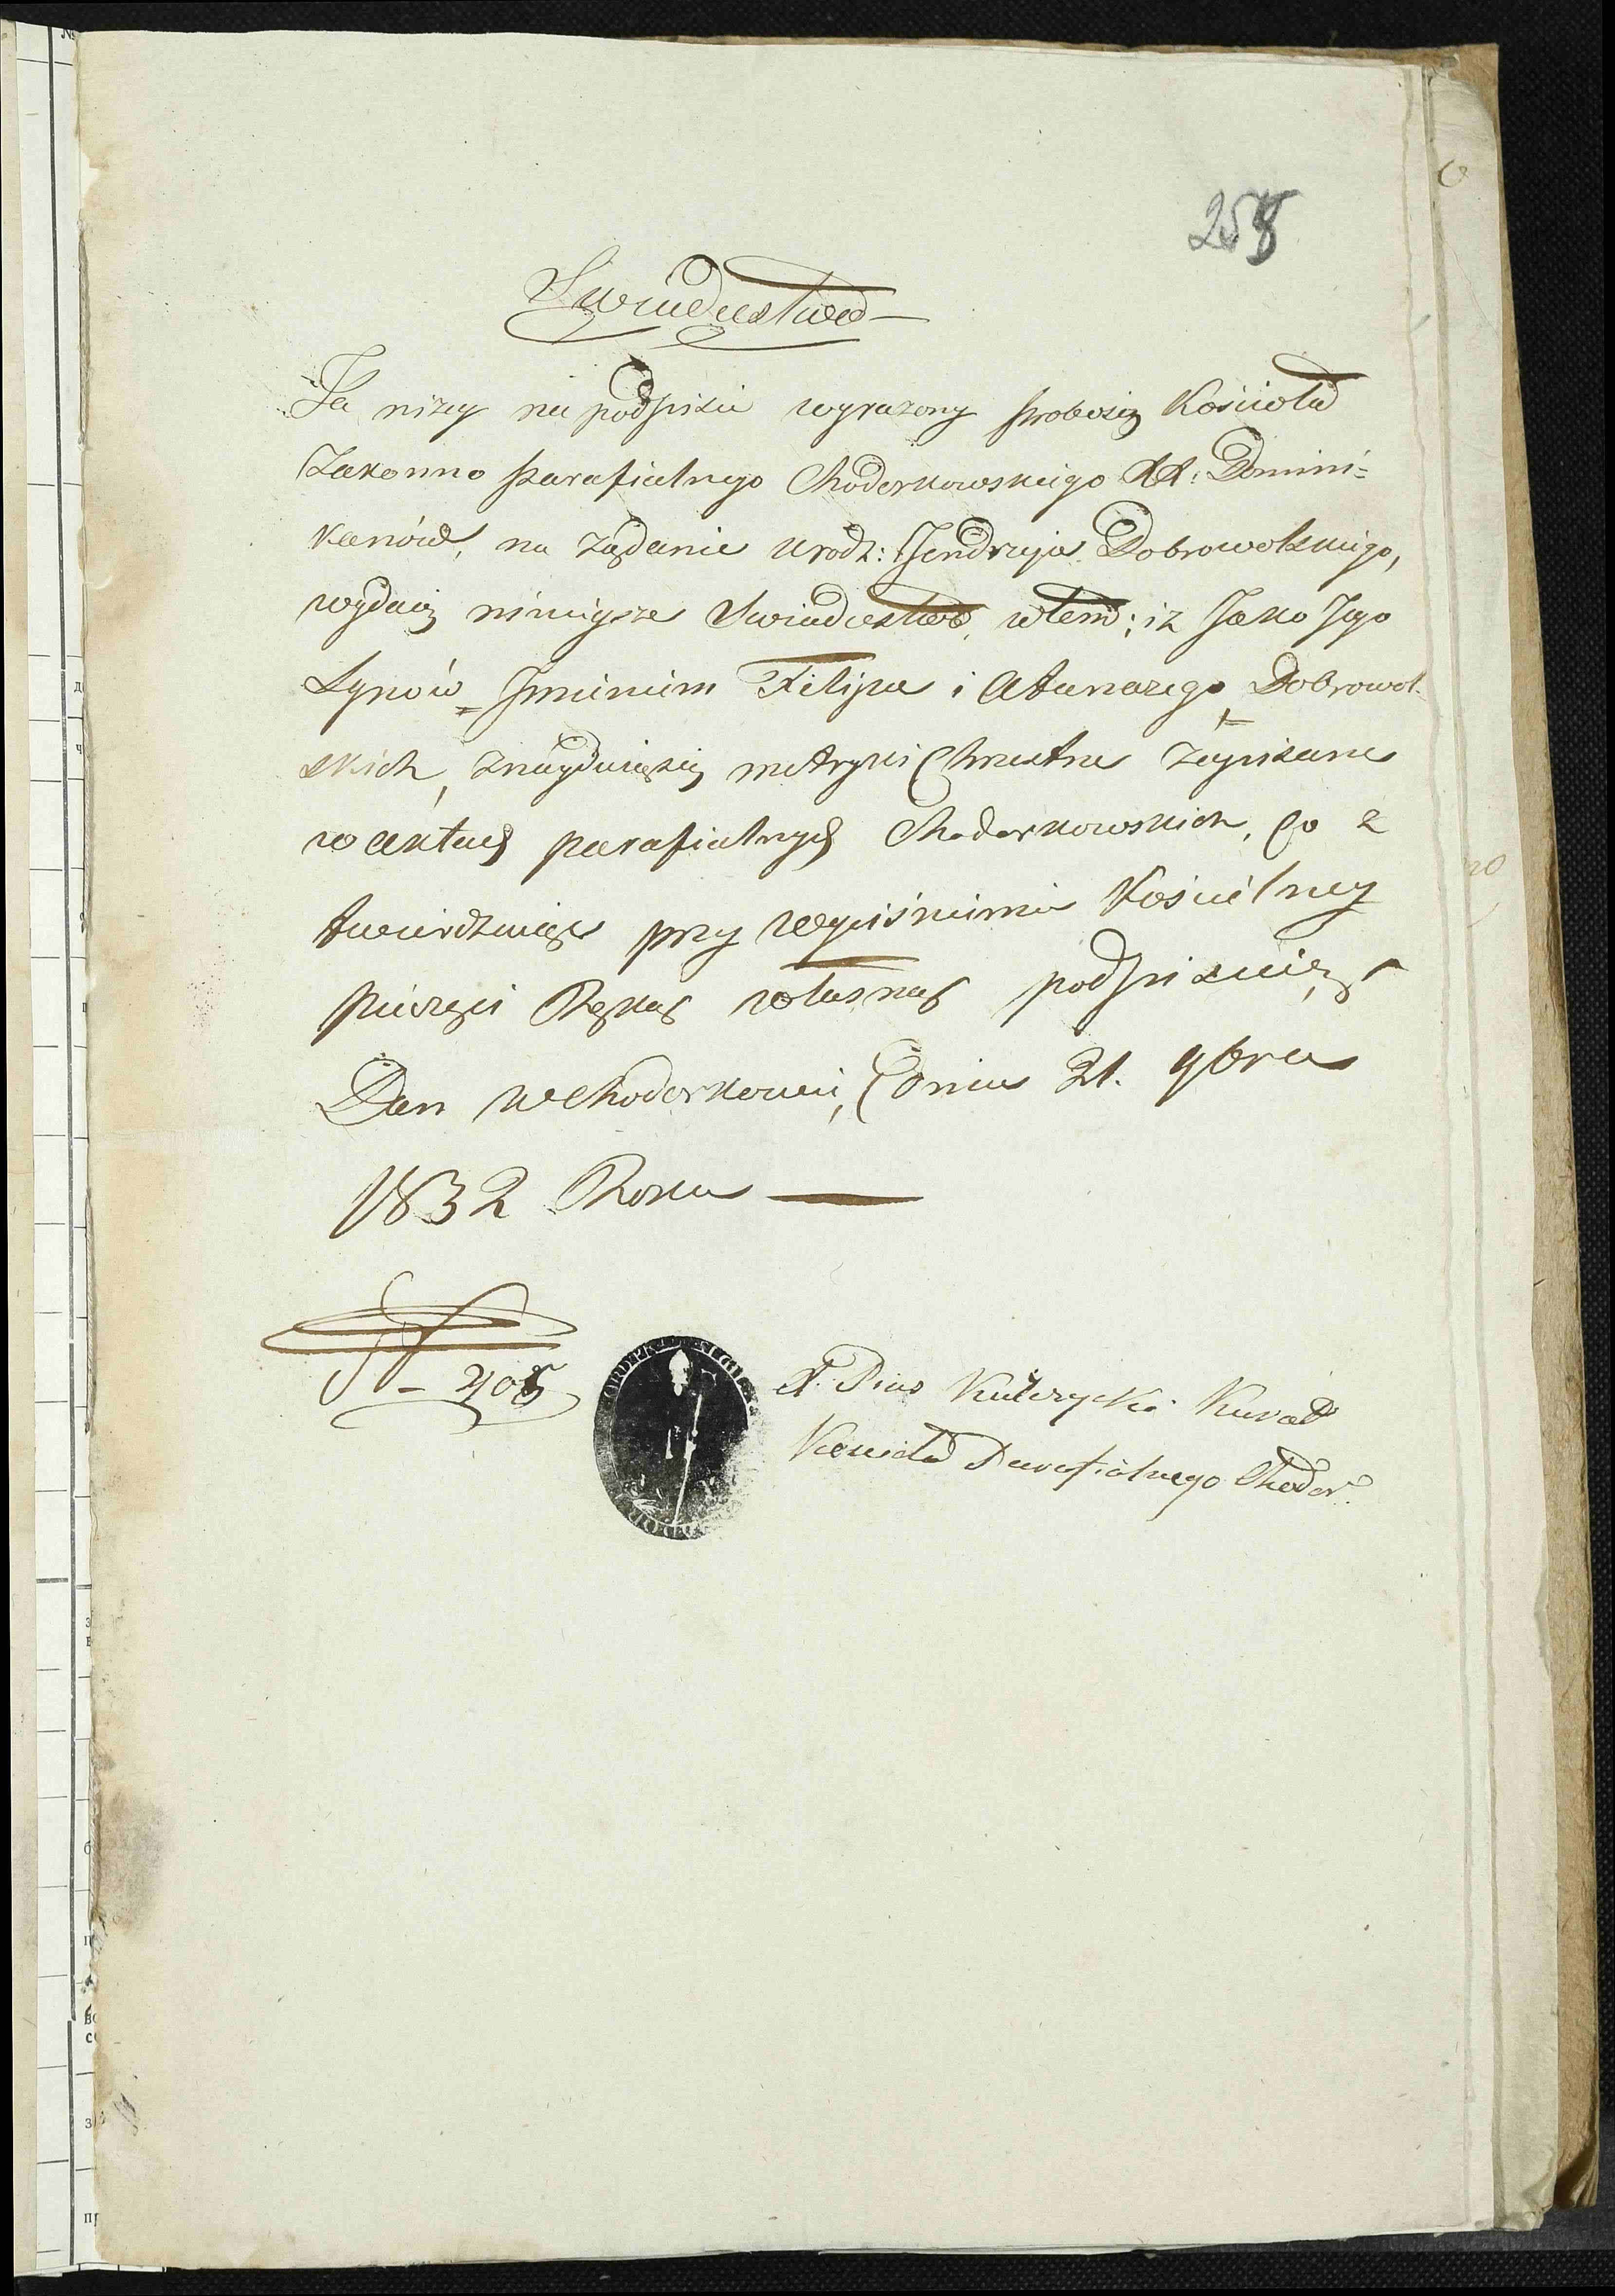 258
Swiadectwo
Ja niżey na podpisie wyrażony proboszcz Kościoła
Zakonno parafialnego Chodorkowskiego XX: Domini=
kanów, na żądanie Urodz: Jendrzeja Dobrowolskiego,
wydaię ninieysze Swiadectwo, wtem; iż Jako Jego
Synów Jmieniem Filipa i Atanazego Dobrowol-
skich, znayduią się metryki Chrzestne zapisane
w aktach parafialnych Chodorkowskich, Co z
twierdzaiąc przy wyciśnieniu Kościelney
pieczęci Ręką własną podpisuię
Dan w Chodorkowie, Dnia 21. 9bra
1832 Roku
N - 205
X. Pius Kulczycki Kurat
Koscioła Parafialnego Chodor.